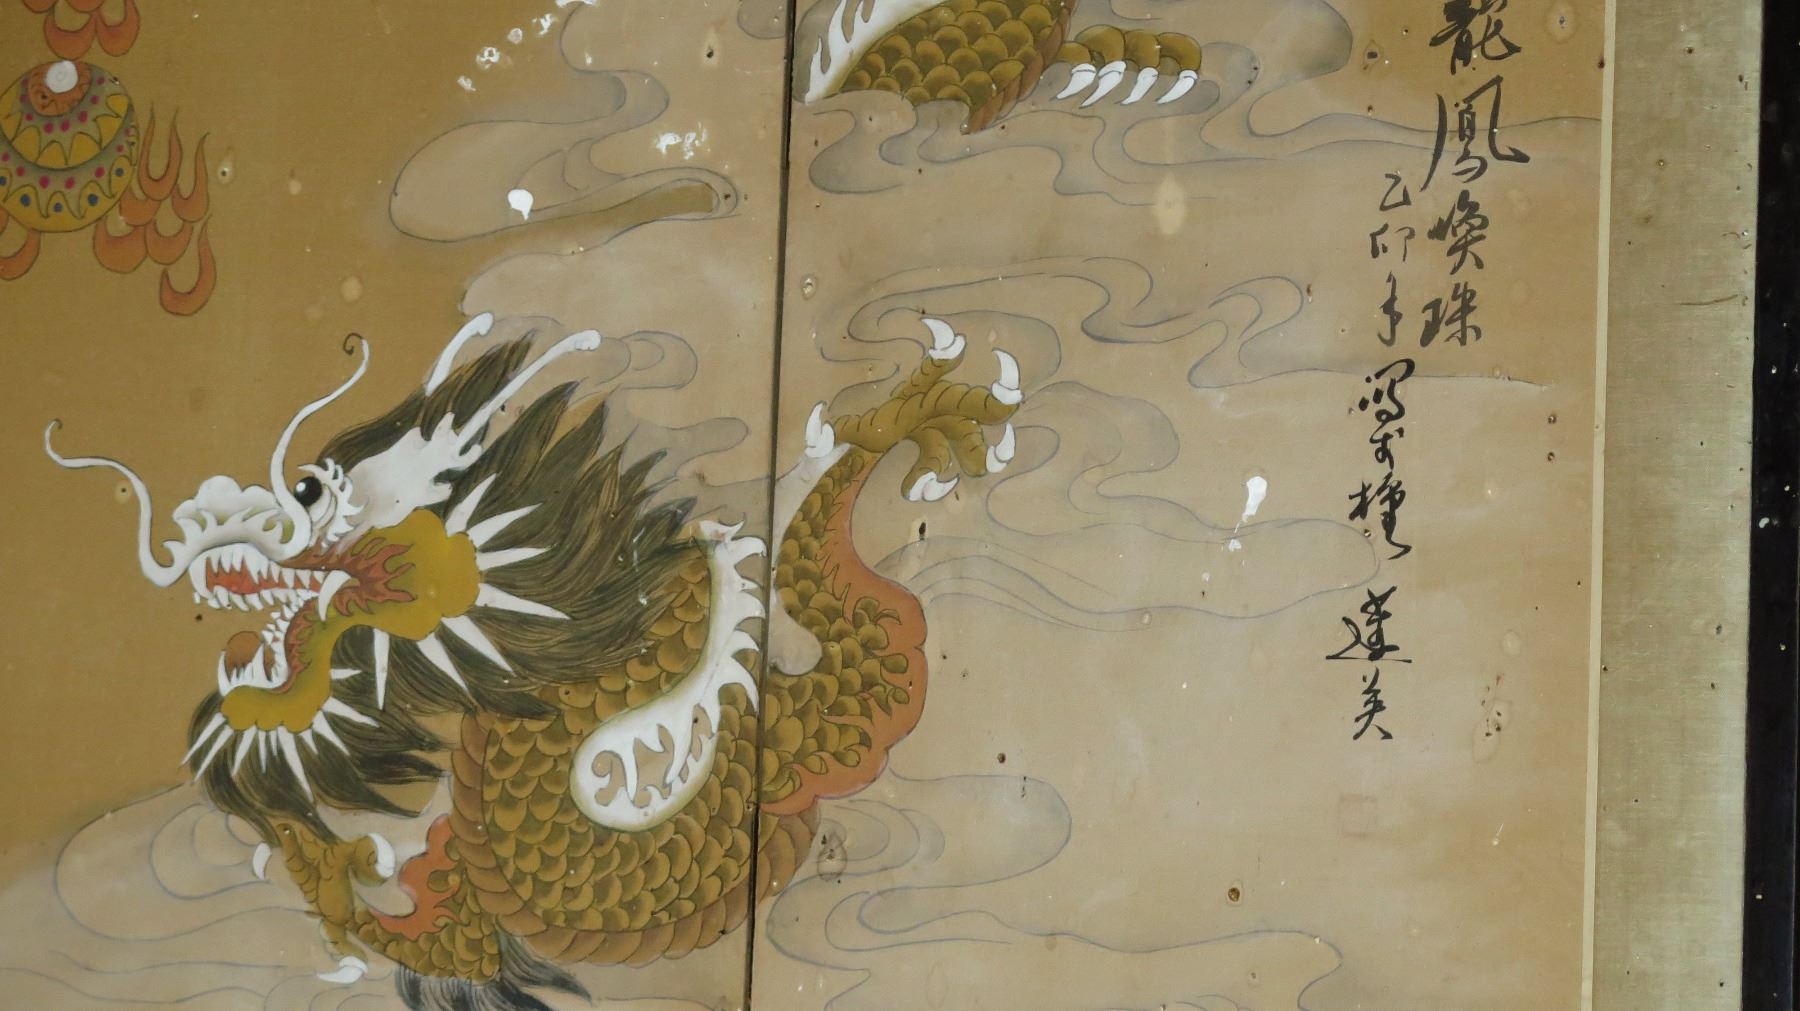 龍鳳喚珠
乙卯年寫於權 達美